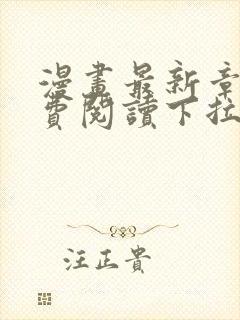 漫畫最新章
費閱讀下拉
汪正貴